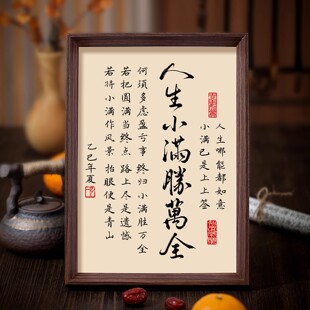 人生哪能都如意
小满已是上上签
人生小滿勝萬全
何須多虑盈亏事 终归小满胜万全
若把圆满当终点 路上尽是遗憾
若将小满作风景 抬眼便是青山
乙巳年夏